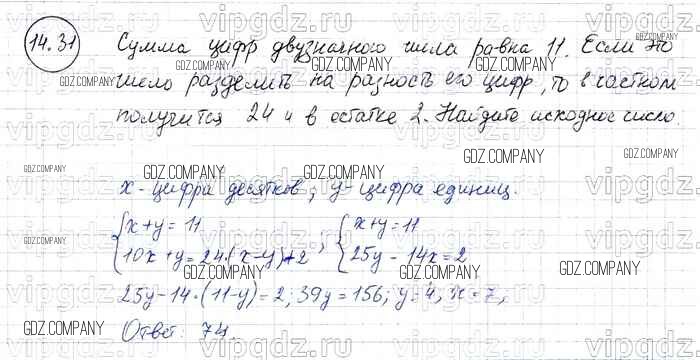 14.31 Сумма цифр двузначного числа равна 11. Если это
число разделить на разность его цифр, то в частном
получится 24 и в остатке 2. Найдите исходное число.
x - цифра десятков; y - цифра единиц.
{x+y=11 , {x+y=11
{10x+y=24·(x-y)+2 {25y-14x=2
25y-14·(11-y)=2; 39y=156; y=4, x=7,
Ответ: 74.
vipgdz.ru
GDZ.COMPANY